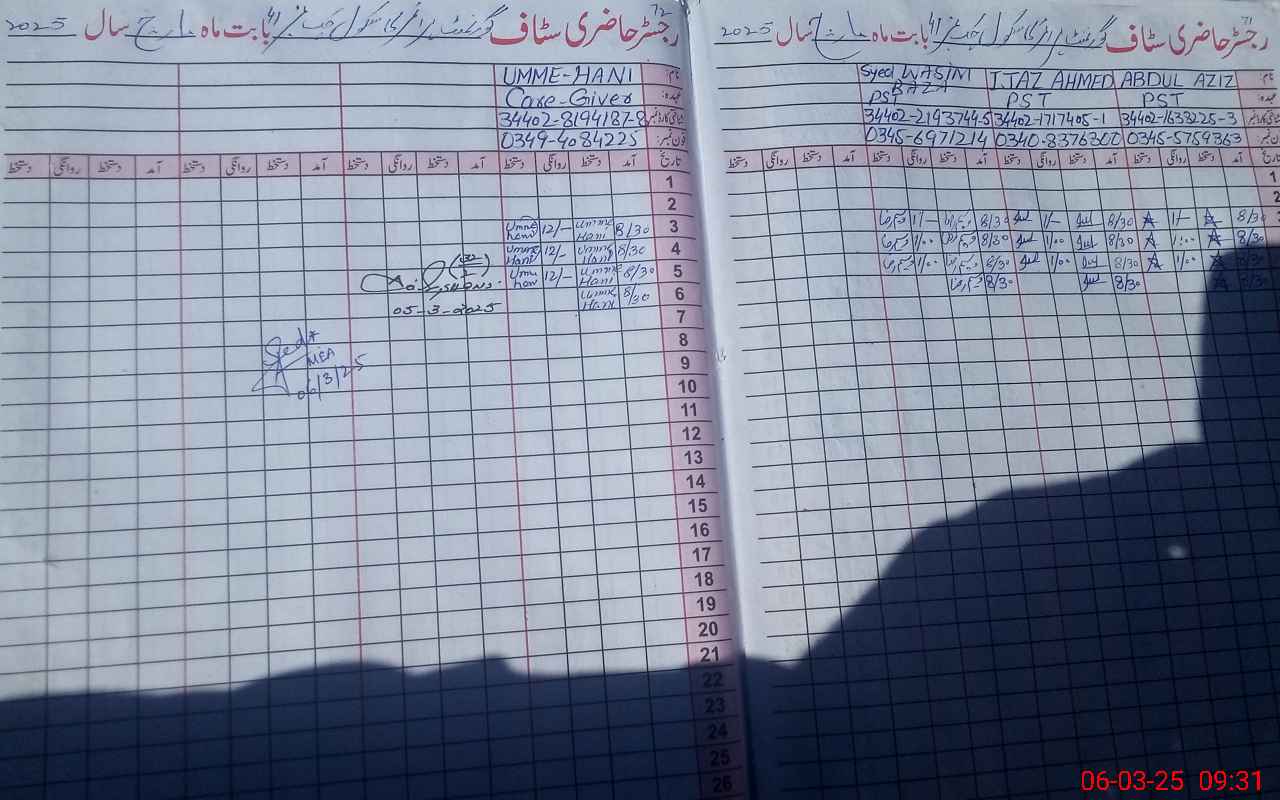 72
رجسٹر حاضری سٹاف گورنمنٹ پرائمری سکول چک نمبر 41 بابت ماہ مارچ سال 2025
نام: UMME-HANI
عہدہ: Care-Giver
شناختی کارڈ نمبر 34402-8194187-8
فون نمبر: 0349-4084225
تاریخ آمد دستخط روانگی دستخط آمد دستخط روانگی دستخط آمد دستخط روانگی دستخط آمد دستخط روانگی دستخط
1
2
3 8/30 Umme Hani 12/- Umme Hani
4 8/30 Umme Hani 12/- Umme Hani
5 8/30 Umme Hani 12/- Umme Hani
6 8/30 Umme Hani
05-3-2025
7
8
MEA
9
06/3/25
10
11
12
13
14
15
16
17
18
19
20
21
22
23
24
25
26
71
رجسٹر حاضری سٹاف گورنمنٹ پرائمری سکول چک نمبر 41 بابت ماہ مارچ سال 2025
نام: ABDUL AZIZ IJAZ AHMED Syed WASIM RAZA
عہدہ: PST PST PST
34402-1638225-3 34402-1717405-1 34402-2193744-5
فون نمبر: 0345-5759363 0340-8376300 0345-6971214
تاریخ آمد دستخط روانگی دستخط آمد دستخط روانگی دستخط آمد دستخط روانگی دستخط آمد دستخط روانگی دستخط
1
2
8/30 1/- 8/30 1/- 8/30 1/-
8/30 1:00 8/30 1/00 8/30 1/00
8/30 1/00 8/30 1/00 8/30 1/00
8/30 8/30 8/30
06-03-25 09:31